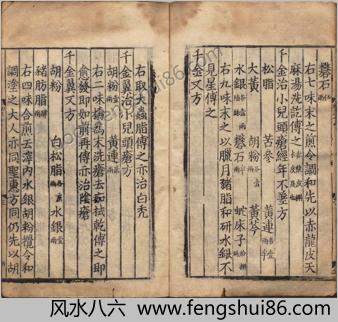 礬石
右七味末之煎令調和先以赤龍皮天
麻湯洗訖傅之
千金治小兒頭瘡經年不差方
松脂 苦參 黃連
大黃 胡粉 黃芩
水銀 礬石 蛇床子
右九味末之以臘月豬脂和研水銀不
見星傅之
千金又方
右取大蟲脂傅之亦治白禿
千金翼治小兒頭瘡方
胡粉 黃連
右二味搗為末洗瘡去痂拭乾傅之即
愈發即如前傅亦治陰瘡
千金翼又方
胡粉 白松脂 水銀
豬肪脂
右四味合煎去滓內水銀胡粉攪令和
調塗之大人亦同聖惠方同仍先以胡
风水八六 www.fengshui86.com